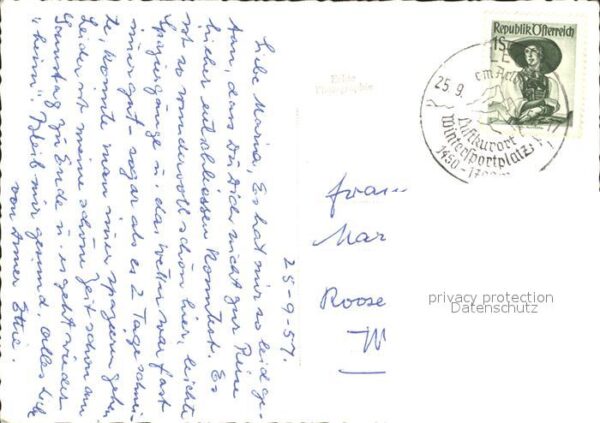 25-9-57.
Liebe Maria, Es hat mir so leid ge-
tan, dass Du Dich nicht zur Reise
hieher entschliessen konntest. Es
ist so wundervoll schön hier, leichte
Spaziergänge u. das Wetter war fast
immer gut – sogar als es 2 Tage schnei-
te, konnte man immer spazieren gehen
Leider ist meine schöne Zeit schon am
Samstag zu Ende u. es geht wieder
"heim". Bleib mir gesund, alles Liebe
von Deiner
Echte
Photographie
Republik Österreich
1S
25.9.
Luftkurort
Wintersportplatz
1450-17
Frau
Mar
Roose
W
privacy protection
Datenschutz